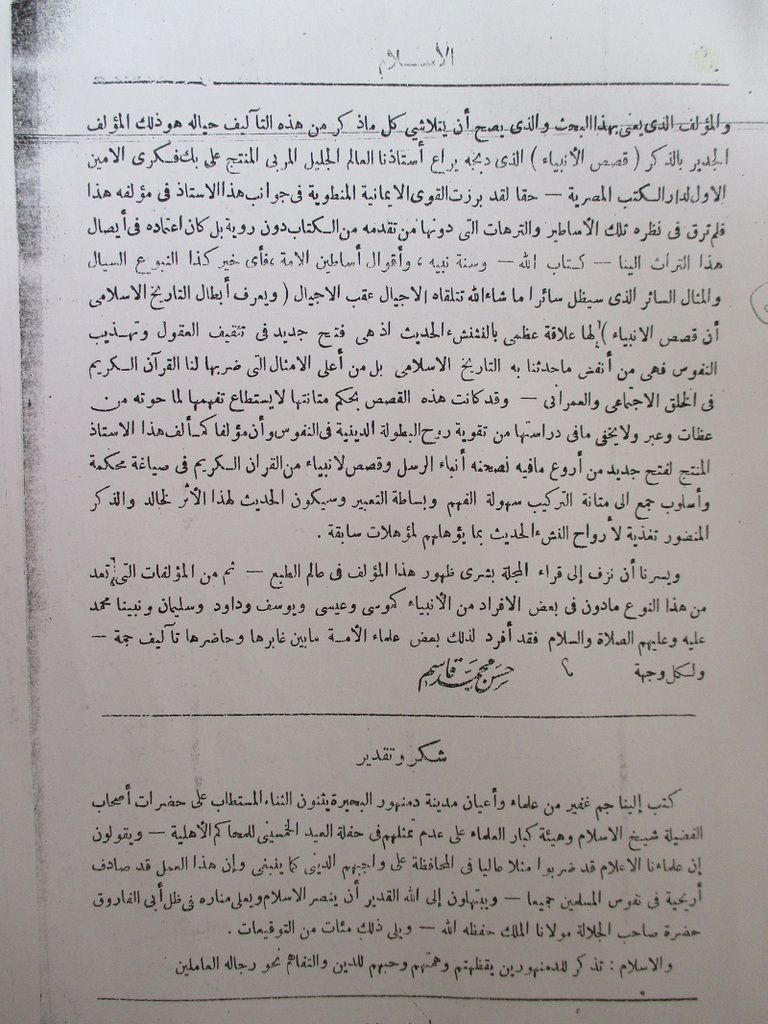 الاســـلام
والمؤلف الذى يعنى بهذا البحث والذى يصح أن يتلاشي كل ماذكر من هذه التآليف حياله هو ذلك المؤلف
الجدير بالذكر ( قصص الأنبياء ) الذى دبجه يراع أستاذنا العالم الجليل المربى المنتج على بك فكرى الامين
الاول لدار الكتب المصرية — حقا لقد برزت القوى الايمانية المنطوية فى جوانب هذا الاستاذ فى مؤلفه هذا
فلم ترق فى نظره تلك الأساطير والترهات التى دونها من تقدمه من الكتاب دون روية بل كان اعتماده فى أيصال
هذا التراث الينا — كتاب الله — وسنة نبيه ، وأقوال أساطين الامة ، فأى خير كذا النبوع السيال
والمثال السائر الذى سيظل سائرا ما شاء الله تتلقاه الاجيال عقب الاجيال ( ويعرف أبطال التاريخ الاسلامى
أن قصص الانبياء ) لها علاقة عظمى بالنشء الحديث اذ هى فتح جديد فى تثقيف العقول وتهذيب
النفوس فهى من أنفض ماحدثنا به التاريخ الاسلامى بل من أعلى الامثال التى ضربها لنا القرآن الكريم
فى الخلق الاجتماعى والعمرانى — وقد كانت هذه القصص بحكم متانتها لايستطاع تفهمها لما حوته من
عظات وعبر ولايخفى مافى دراستها من تقوية روح البطولة الدينية فى النفوس وأن مؤلفا كمؤلف هذا الاستاذ
المنتج لفتح جديد من أروع مافيه نصحته أنباء الرسل وقصص لانبياء من القران الكريم فى صياغة محكمة
وأسلوب جمع الى متانة التركيب سهولة الفهم وبساطة التعبير وسيكون الحديث لهذا الأثر الخالد والذكر
المنضور تغذية لأرواح النشء الحديث بما يؤهلهم لمؤهلات سابقة .
ويسرنا أن نزف إلى قراء المجلة بشرى ظهور هذا المؤلف فى عالم الطبع — ثم من المؤلفات التى تعد
من هذا النوع مادون فى بعض الافراد من الأنبياء كموسى وعيسى ويوسف وداود وسليمان ونبينا محمد
عليه وعليهم الصلاة والسلام فقد أفرد لذلك بعض علماء الأمة مابين غابرها وحاضرها تآليف جمة —
ولكل وجهة
حسن محمد قاسم
شكر وتقدير
كتب إلينا جم غفير من علماء وأعيان مدينة دمنهور البحيرة يثنون الثناء المستطاب على حضرات أصحاب
الفضيلة شيخ الاسلام وهيئة كبار العلماء على عدم تمثلهم فى حفلة العيد الخمسينى للمحاكم الأهلية — ويقولون
إن علماءنا الاعلام قد ضربوا مثلا عاليا فى المحافظة على واجبهم الدينى كما ينبغى وإن هذا العمل قد صادف
أريحية فى نفوس المسلمين جميعا — ويبتهلون إلى الله القدير أن ينصر الاسلام ويعلى مناره فى ظل أبى الفاروق
حضرة صاحب الجلالة مولانا الملك حفظه الله — ويلى ذلك مئات من التوقيعات .
والاسلام : تذكر للدمنهورين يقظتهم وهمتهم وحبهم للدين والتفاهم نحو رجاله العاملين